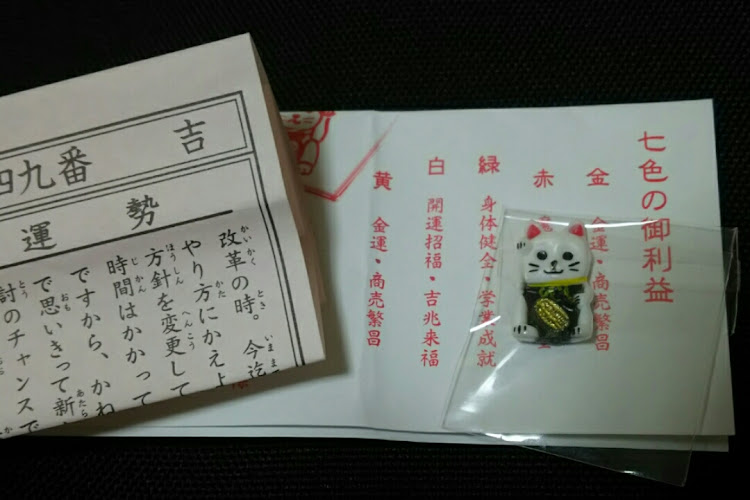 四九番 吉
運勢
改革の時。今迄
やり方にかえよ
方針を変更して
時間はかかって
ですから、かね
で思いきって新
討のチャンスで
七色の御利益
金 金運・商売繁昌
赤
緑 身体健全・業成就
白 開運招福・吉兆来福
黄 金運・商売繁昌